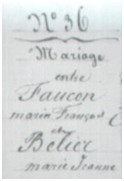 N° 36
Mariage
entre
Faucon
marin François
et
Belier
marie Jeanne